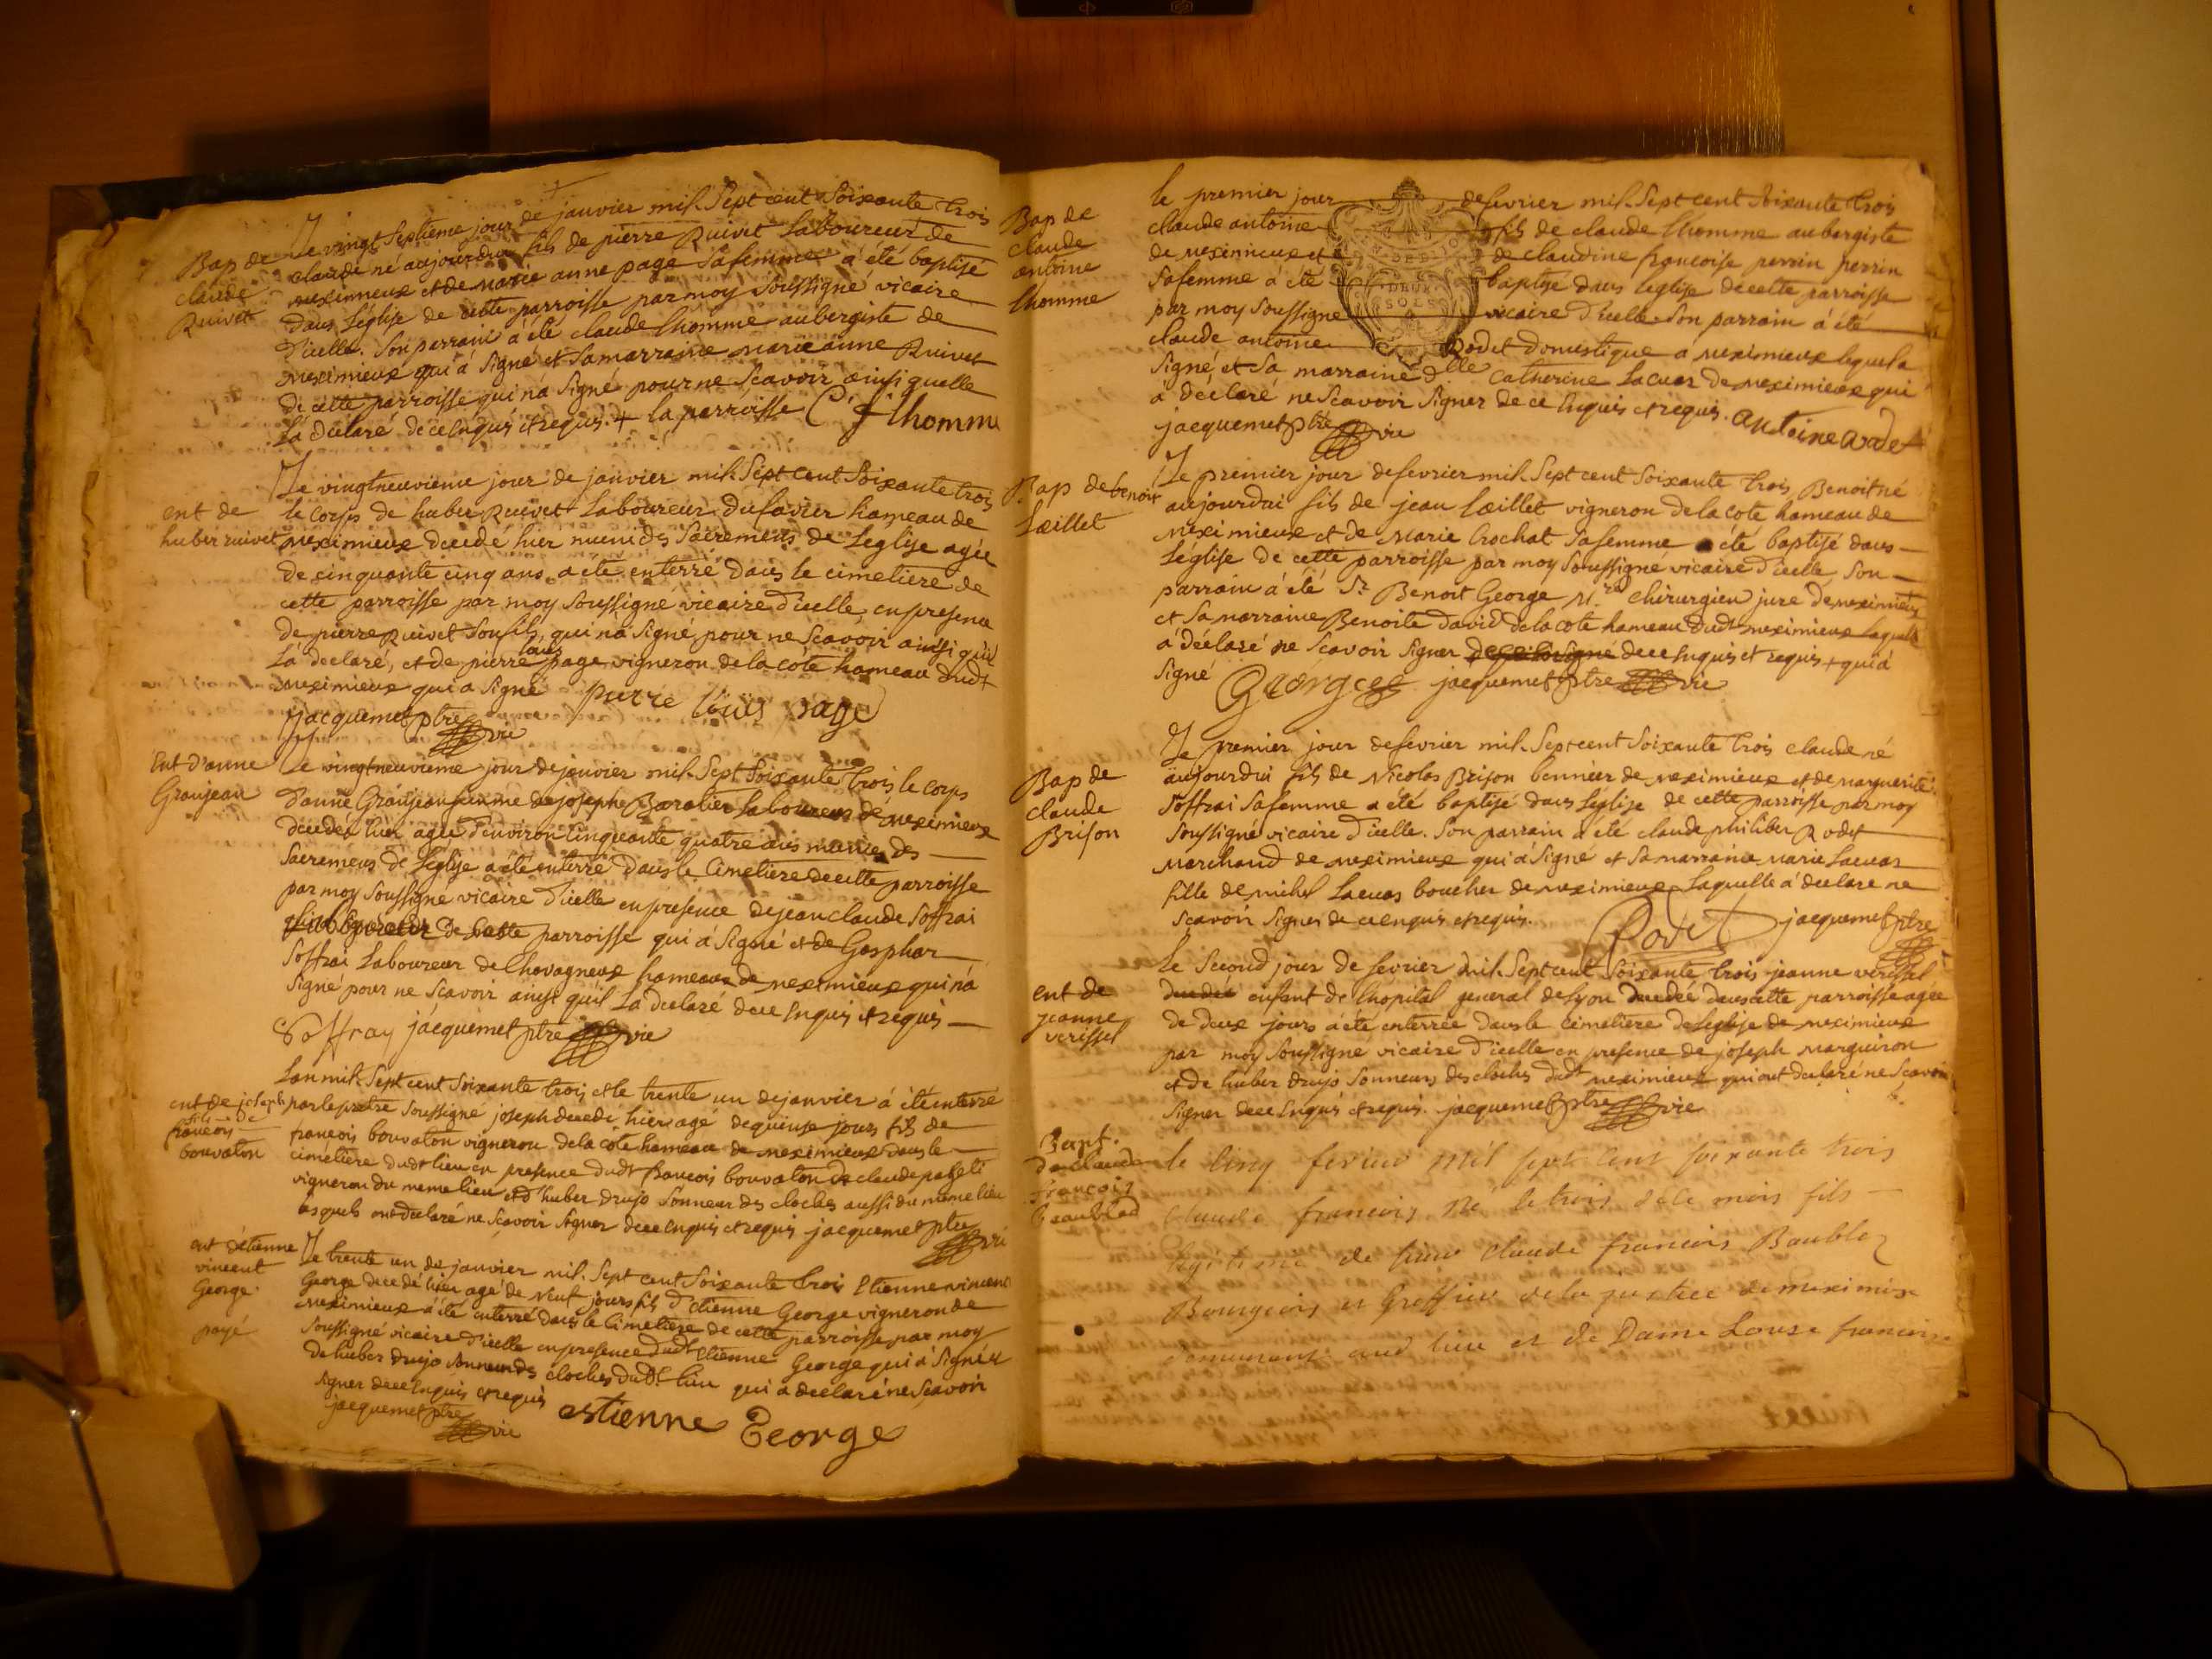 Bap de
claude
Ruivet
Le vingt septieme jour de janvier mil sept cent soixante trois
claude né aujourdui fils de pierre Ruivet Laboureur de
meximieux et de marie anne page sa femme a été baptisé
dans l'église de cette parroisse par moy soussigné vicaire
d'icelle. son parrain a été claude lhomme aubergiste de
meximieux qui a signé et sa marraine marie anne Ruivet
de cette parroisse qui n'a signé pour ne scavoir ainsi quelle
l'a declaré de ce enquis et requis. + la parroisse C f lhomme
ent de
huber ruivet
Le vingtneuvieme jour de janvier mil sept cent soixante trois
le corps de huber Ruivet Laboureur du favier hameau de
meximieux decedé hier muni des sacremens de l'eglise agée
de cinquante cinq ans a été enterré dans le cimetiere de
cette parroisse par moy soussigné vicaire d'icelle, en presence
de pierre Ruivet son fils, qui n'a signé pour ne scavoir ainsi qu'il
l'a declaré, et de pierre louis page vigneron de la cote hameau dudt
meximieux qui a signé pierre loüis page
jacquemet ptre vic
Ent d'anne
Granjean
Le vingtneuvieme jour de janvier mil sept soixante trois le corps
d'anne Granjean femme de josephe Baratier laboureur de meximieux
decedée hier agée d'environ cinquante quatre ans munie des
sacremens de l'eglise a été enterré dans le cimetiere de cette parroisse
par moy soussigné vicaire d'icelle en presence de jean claude soffrai
de cette parroisse qui a signé et de Gasphar
soffrai Laboureur de Chavagneux hameau de meximieux qui n'a
signé pour ne scavoir ainsi qu'il l'a declaré de ce enquis et requis
Soffray jacquemet ptre vic
ent de joseph
fils de
francois
bouvaton
Lan mil sept cent soixante trois et le trente un de janvier a été enterré
par le pretre soussigné joseph decedé hier agé de quinse jours fils de
francois bouvaton vigneron de la cote hameau de meximieux dans le
cimetiere dudt lieu en presence dudt francois bouvaton de claude
vigneron du meme lieu et d'huber drujo sonneur des cloches aussi du meme lieu
lesquels ont declaré ne scavoir signer de ce enquis et requis jacquemet ptre
vic
ent detienne
vincent
George
payé
Le trente un de janvier mil sept cent soixante trois Etienne vincent
George decedé hier agé de neuf jours fils d'etienne George vigneron de
meximieux a été enterré dans le cimetiere de cette parroisse par moy
soussigné vicaire d'icelle en presence dudt Etienne George qui a signé et
de huber drujo sonneur des cloches dudt lieu qui a declaré ne scavoir
signer de ce enquis et requis
jacquemet ptre vic estienne George
Bap de
claude
antoine
lhomme
le premier jour de fevrier mil sept cent soixante trois
claude antoine fils de claude lhomme aubergiste
de meximieux et de claudine francoise perrin perrin
sa femme a été baptisé dans l'eglise de cette parroisse
par moy soussigné vicaire d'icelle son parrain a été
claude antoine Rodet domestique a meximieux lequel a
signé et sa marraine dlle Catherine Lacuas de meximieux qui
a declaré ne scavoir signer de ce enquis et requis. antoine
jacquemet ptre vic
Bap de benoit
Lœillet
Le premier jour de fevrier mil sept cent soixante trois Benoit né
aujourdui fils de jean Lœillet vigneron de la cote hameau de
meximieux et de marie Crochat sa femme a été baptisé dans
l'eglise de cette parroisse par moy soussigné vicaire d'icelle, son
parrain a été Sr Benoit George chirurgien juré de meximieux
et sa marraine Benoite david de la cote hameau dudt meximieux laquelle
a declaré ne scavoir signer de ce enquis et requis + qui a
signé George jacquemet ptre vic
Bap de
claude
Brison
Le premier jour de fevrier mil sept cent soixante trois claude né
aujourdui fils de Nicolas Brison bennier de meximieux et de marguerite
soffrai sa femme a été baptisé dans l'eglise de cette parroisse par moy
soussigné vicaire d'icelle. son parrain a été claude philiber Rodet
marchand de meximieux qui a signé et sa marraine marie Lacuas
fille de michel Lacuas boucher de meximieux laquelle a declaré ne
scavoir signer de ce enquis et requis. Rodet jacquemet ptre
ent de
jeanne
verissel
Le second jour de fevrier mil sept cent soixante trois jeanne verissel
decedée enfant de l'hopital general de lyon decedée dans cette parroisse agée
de deux jours a été enterrée dans le cimetiere de l'eglise de meximieux
par moy soussigné vicaire d'icelle en presence de joseph marguiron
et de huber drujo sonneurs des cloches dudt meximieux qui ont declaré ne scavoir
signer de ce enquis et requis. jacquemet ptre vic
Bapt.
de claude
francois
le cinq fevrier mil sept cent soixante trois
claude francois né le trois de ce mois fils
legitime de sieur claude francois
Bourgeois et Greffier de la justice de meximieux
demeurant aud lieu et de Dame Louise francoise